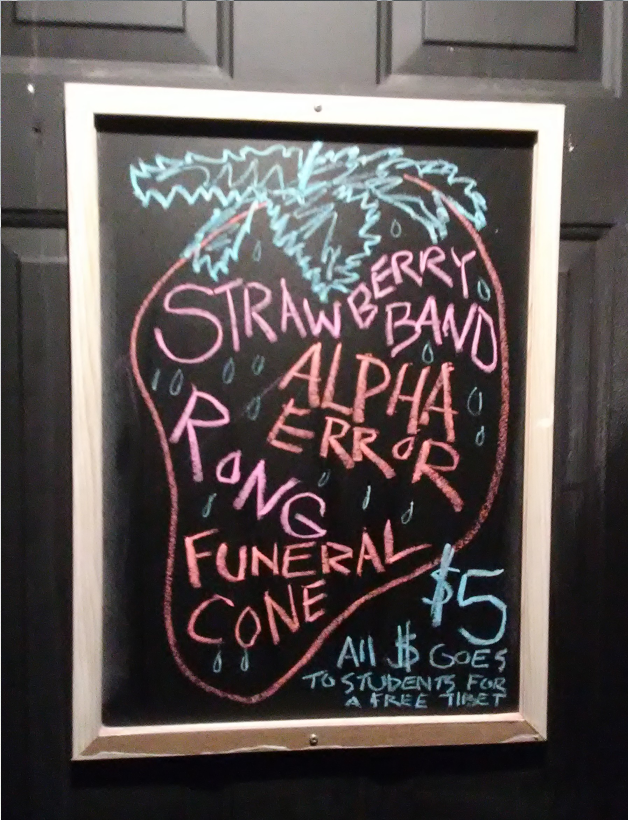 STRAWBERRY
BAND
ALPHA
ERROR
RONG
FUNERAL
CONE
$5
All $ GOES
TO STUDENTS FOR
A FREE TIBET